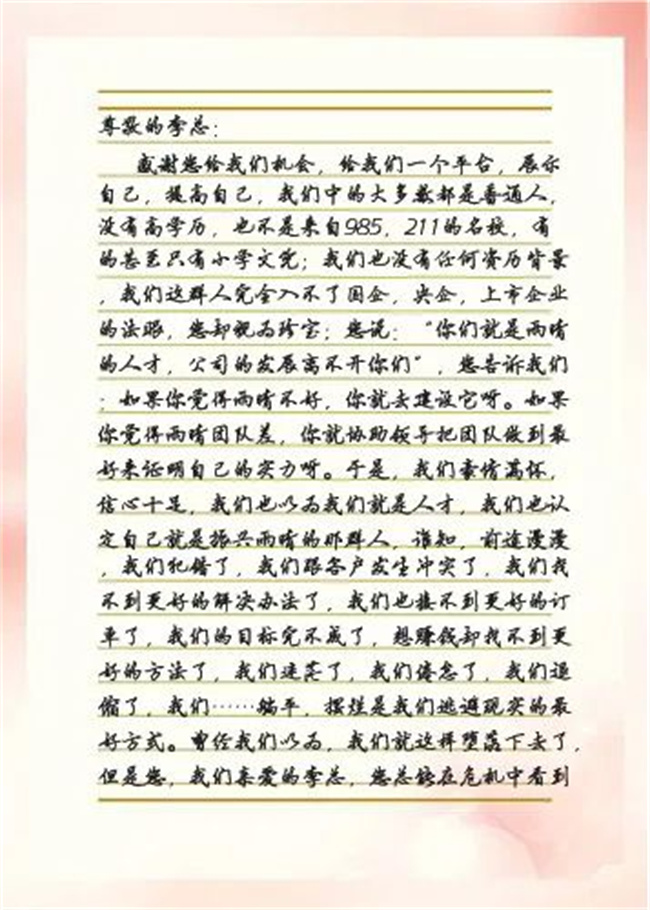 尊敬的李总：
感谢您给我们机会，给我们一个平台，展示
自己，提高自己，我们中的大多数都是普通人，
没有高学历，也不是来自985，211的名校，有
的甚至只有小学文凭；我们也没有任何资历背景
，我们这群人完全入不了国企，央企，上市企业
的法眼，您却视为珍宝；您说：“你们就是雨晴
的人才，公司的发展离不开你们”，您告诉我们
：如果你觉得雨晴不好，你就去建设它呀。如果
你觉得雨晴团队差，你就协助领导把团队做到最
好来证明自己的实力呀。于是，我们豪情满怀，
信心十足，我们也以为我们就是人才，我们也认
定自己就是振兴雨晴的那群人，谁知，前途漫漫
，我们犯错了，我们跟客户发生冲突了，我们找
不到更好的解决办法了，我们也接不到更好的订
单了，我们的目标完不成了，想赚钱却找不到更
好的方法了，我们迷茫了，我们倦怠了，我们退
缩了，我们……躺平，摆烂是我们逃避现实的最
好方式。曾经我们以为，我们就这样堕落下去了，
但是您，我们亲爱的李总，您总能在危机中看到